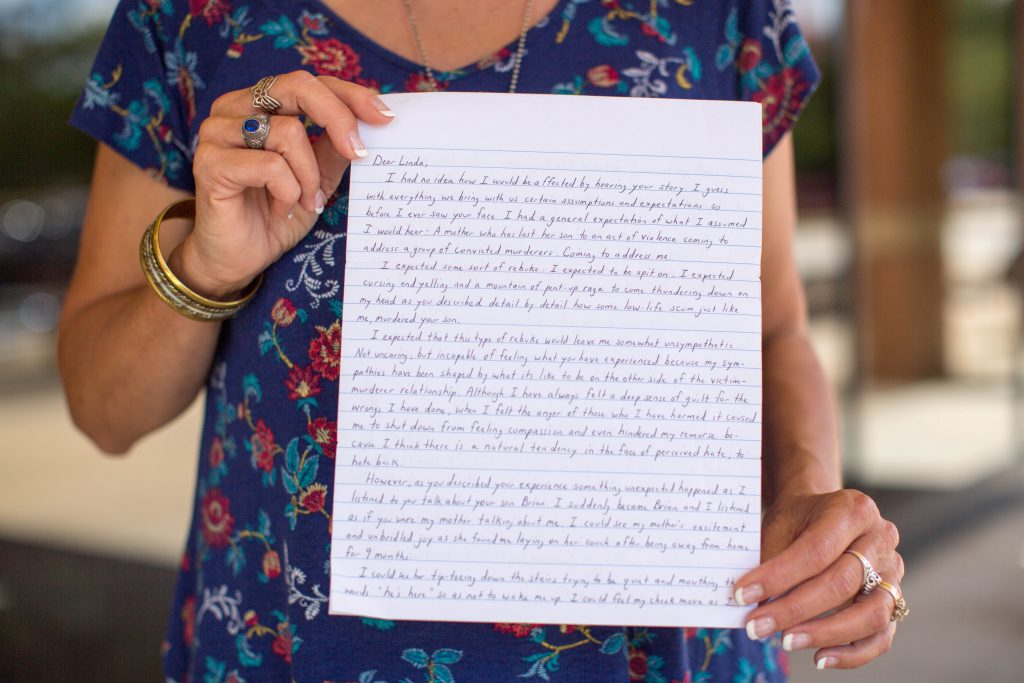 Dear Linda,
I had no idea how I would be affected by hearing your story. I guess
with everything we bring with us certain assumptions and expectations so
before I ever saw your face I had a general expectation of what I assumed
I would hear: A mother who has lost her son to an act of violence coming to
address a group of convicted murderers. Coming to address me.
I expected some sort of rebuke. I expected to be spit on. I expected
cursing and yelling and a mountain of pent-up rage to come thundering down on
my head as you described detail by detail how some low-life scum just like
me, murdered your son.
I expected that this type of rebuke would leave me somewhat unsympathetic.
Not uncaring, but incapable of feeling what you have experienced because my sym-
pathies have been shaped by what its like to be on the other side of the victim-
murderer relationship. Although I have always felt a deep sense of guilt for the
wrongs I have done, when I felt the anger of those who I have harmed it caused
me to shut down from feeling compassion and even hindered my remorse be-
cause I think there is a natural tendency in the face of perceived hate, to
hate back.
However, as you described your experience something unexpected happened as I
listened to you talk about your son Brian. I suddenly became Brian and I listened
as if you were my mother talking about me. I could see my mother's excitement
and unbridled joy as she found me laying on her couch after being away from home
for 9 months.
I could see her tip-toeing down the stairs trying to be quiet and mouthing
words "he's here" so as not to wake me up. I could feel my cheek move as I